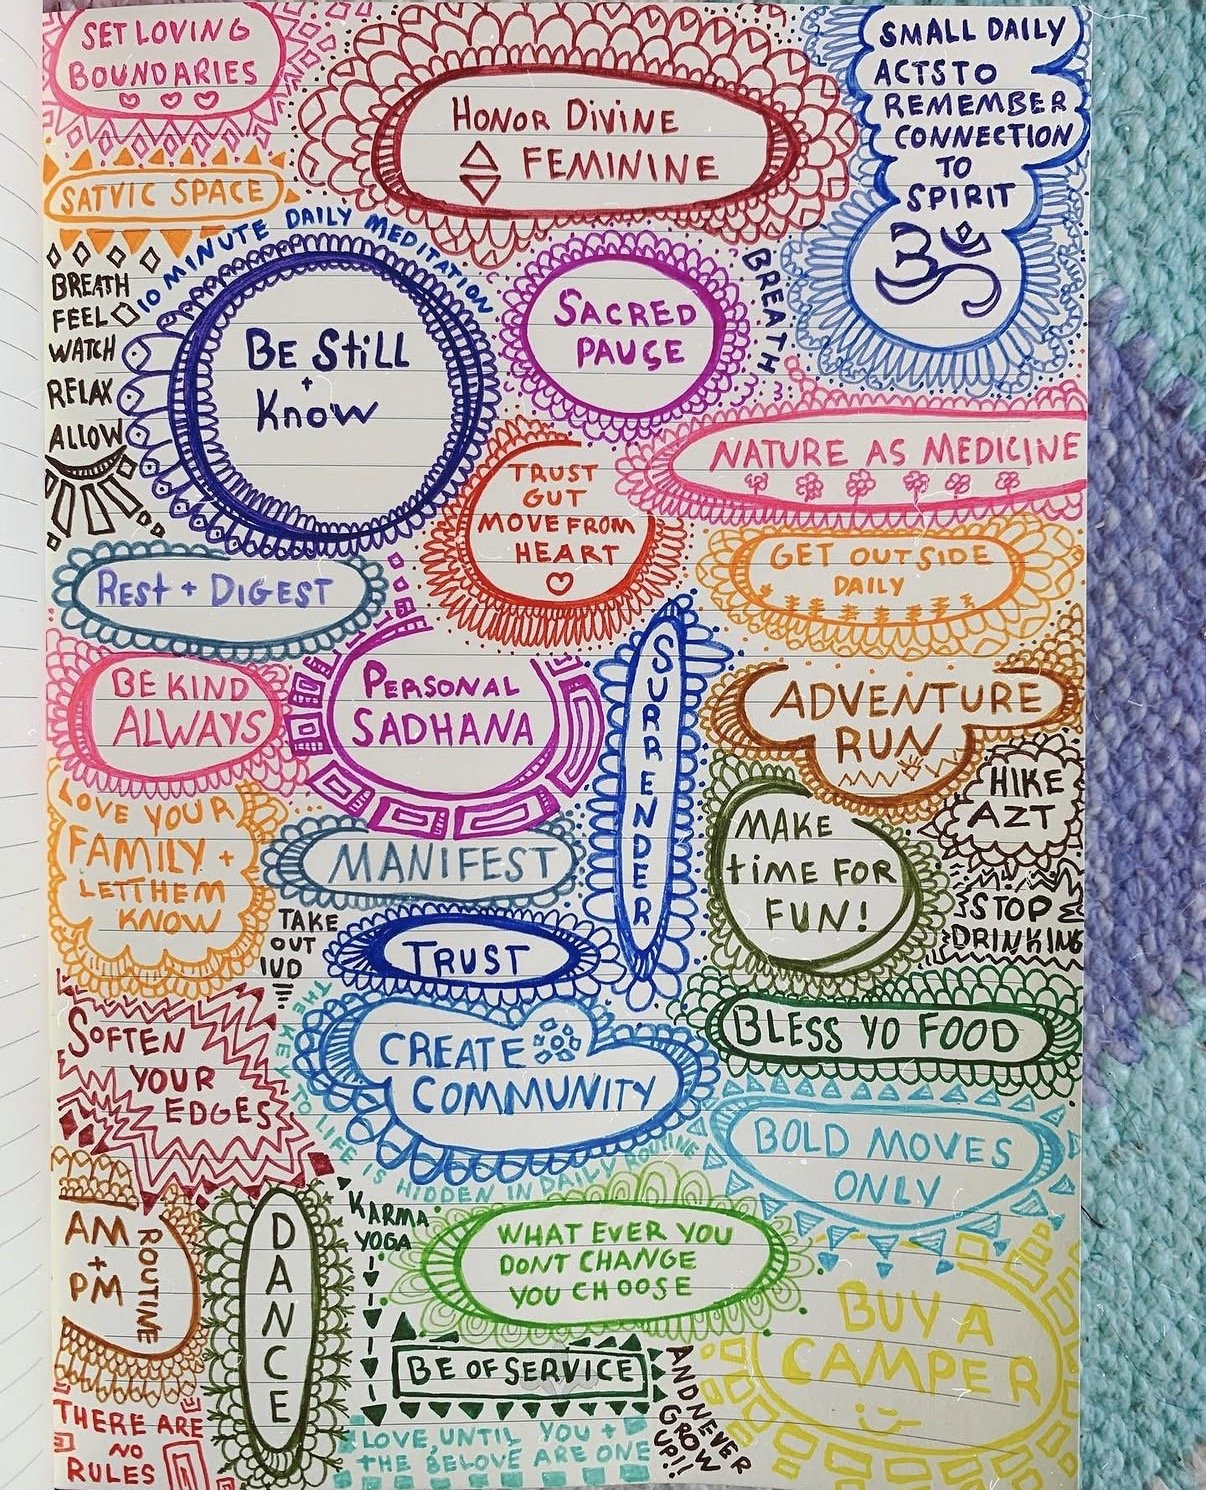 SET LOVING
BOUNDARIES
HONOR DIVINE
FEMININE
SMALL DAILY
ACTS TO
REMEMBER
CONNECTION
TO
SPIRIT
ॐ
SATVIC SPACE
10 MINUTE DAILY MEDITATION
BREATH
FEEL
WATCH
RELAX
ALLOW
BE STiLL
+
KNOW
SACRED
PAUSE
BREATH
NATURE AS MEDICINE
TRUST
GUT
MOVE FROM
HEART
GET OUTSIDE
DAILY
REST + DIGEST
BE KIND
ALWAYS
PERSONAL
SADHANA
SURRENDER
ADVENTURE
RUN
HIKE
AZT
LOVE YOUR
FAMILY +
LET THEM
KNOW
MANIFEST
MAKE
tiME FOR
FUN!
STOP
DRINKING
TAKE
OUT
IUD
TRUST
SOFTEN
YOUR
EDGES
THE KEY TO LIFE IS HIDDEN IN DAILY ROUTINE
CREATE
COMMUNITY
BLESS YO FOOD
BOLD MOVES
ONLY
AM
+
PM
ROUTINE
DANCE
KARMA
YOGA
WHAT EVER YOU
DONT CHANGE
YOU CHOOSE
BUY A
CAMPER
BE OF SERVICE
AND NEVER
GROW
UP!!
THERE ARE
NO
RULES
LOVE, UNTIL YOU +
THE BELOVE ARE ONE